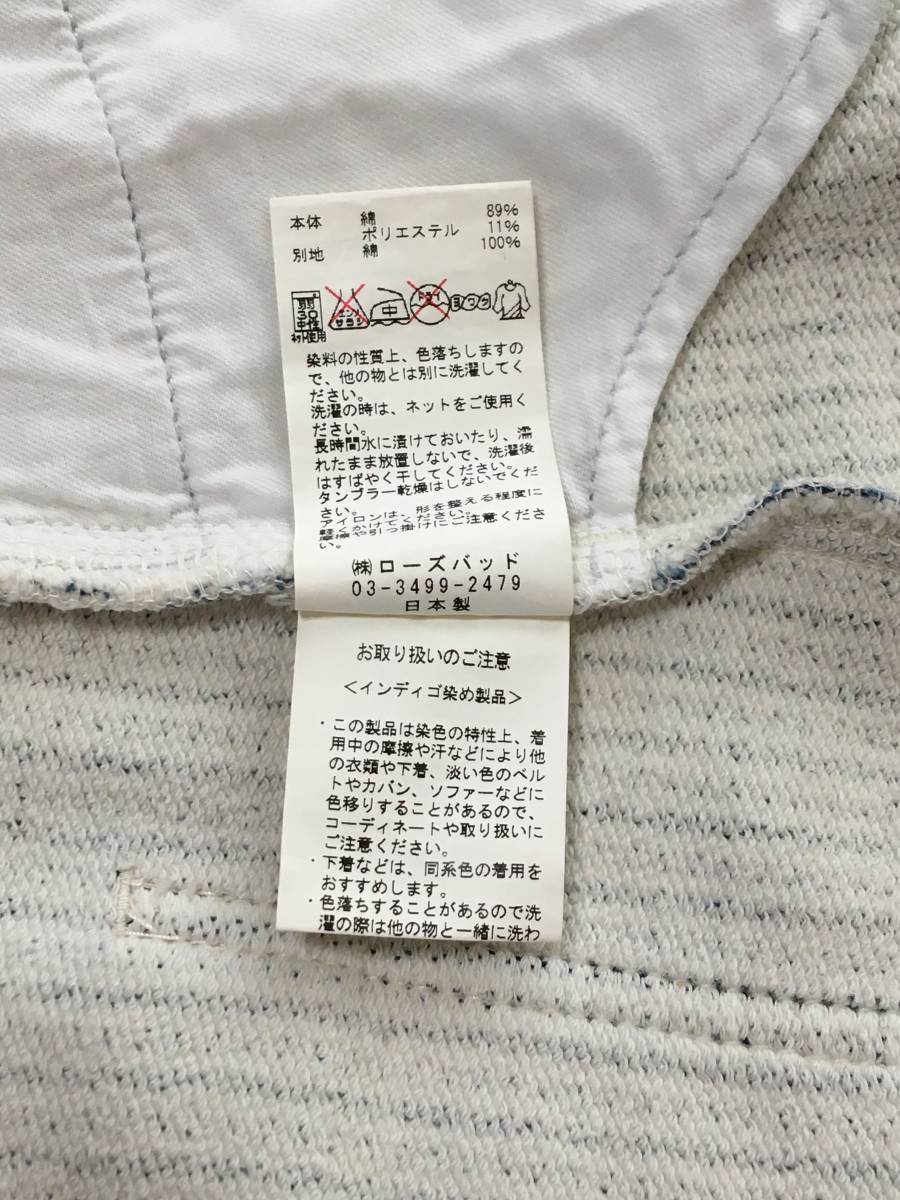 本体 綿 89%
ポリエステル 11%
別地 綿 100%
弱 30 中性 エンソサラシ 中 ドライ ヨワク
ネット使用
染料の性質上、色落ちしますの
で、他の物とは別に洗濯してく
ださい。
洗濯の時は、ネットをご使用く
ださい。
長時間水に漬けておいたり、濡
れたまま放置しないで、洗濯後
はすばやく干してください。
タンブラー乾燥はしないでくだ
さい。
アイロンは、形を整える程度に
軽くかけてください。
摩擦や引っ掛けにご注意くださ
い。
㈱ローズバッド
03-3499-2479
日本製
お取り扱いのご注意
＜インディゴ染め製品＞
・この製品は染色の特性上、着
用中の摩擦や汗などにより他
の衣類や下着、淡い色のベル
トやカバン、ソファーなどに
色移りすることがあるので、
コーディネートや取り扱いに
ご注意ください。
・下着などは、同系色の着用を
おすすめします。
・色落ちすることがあるので洗
濯の際は他の物と一緒に洗わ